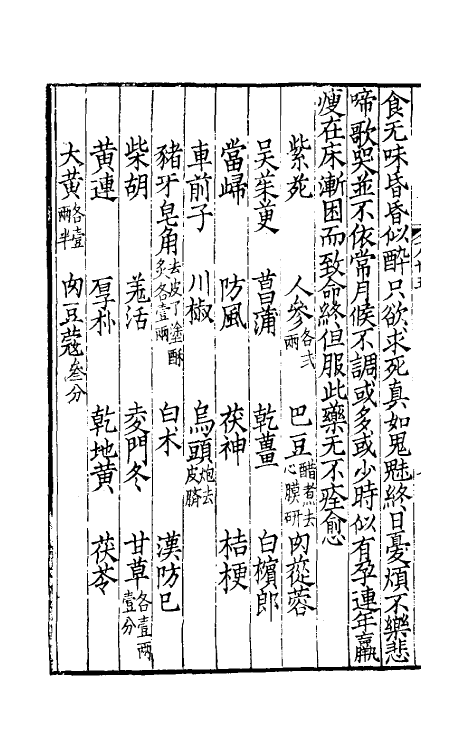 食无味昏昏似醉只欲求死真如鬼魅終日憂煩不樂悲
啼歌哭並不依常月候不調或多或少時似有孕連年羸
瘦在床漸困而致命終但服此藥无不痊愈
紫菀 人參各弍兩 巴豆醋煮去心膜研 肉蓯蓉
吴茱萸 菖蒲 乾薑 白檳郎
當歸 防風 茯神 桔梗
車前子 川椒 烏頭炮去皮臍
豬牙皂角去皮了塗酥炙各壹兩 白术 漢防巳
柴胡 羗活 麦門冬 甘草各壹兩壹分
黄連 厚朴 乾地黄 茯苓
大黄各壹兩半 肉豆蔻叁分